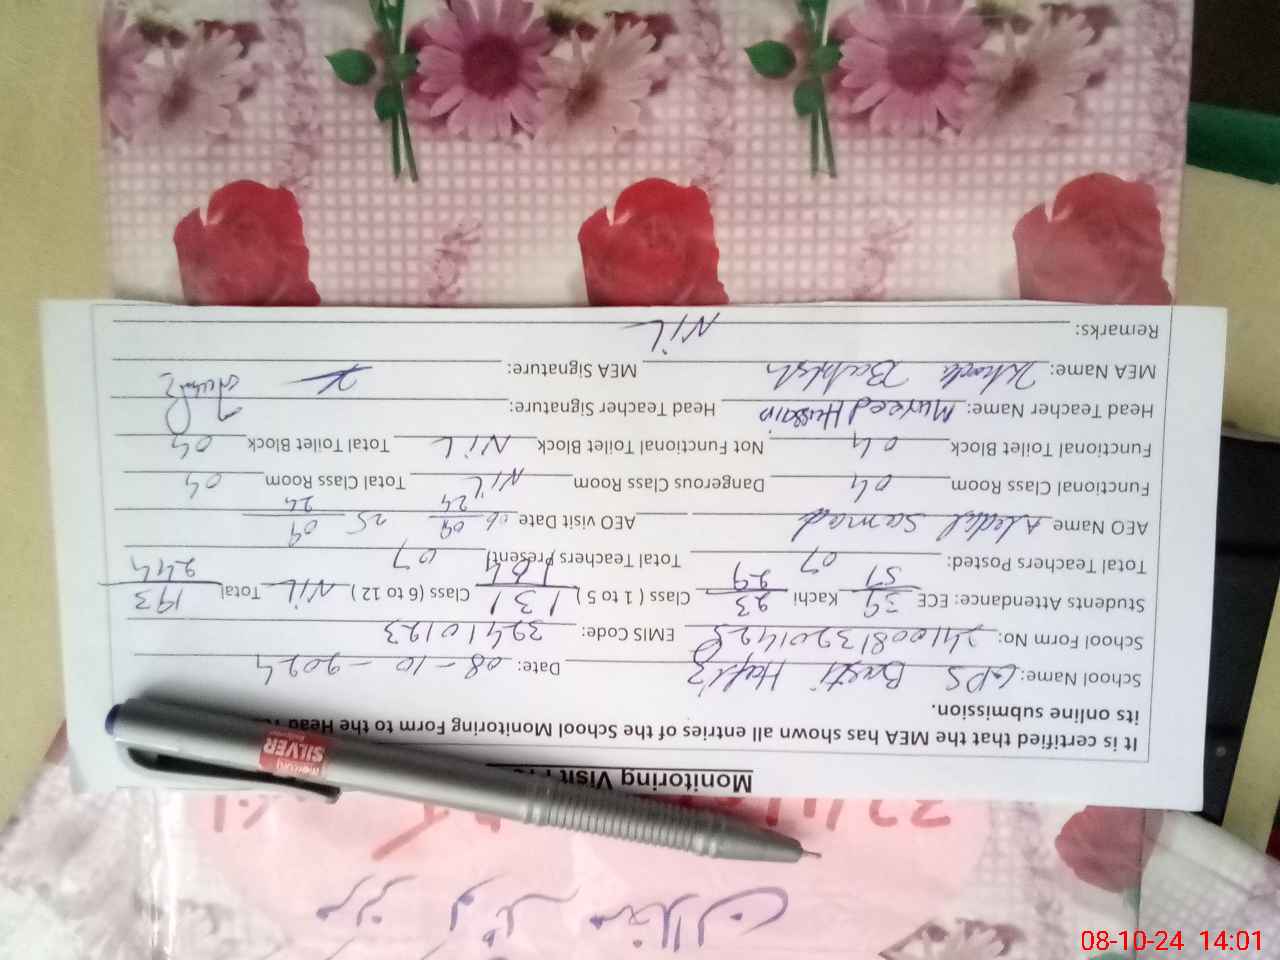 Monitoring Visit
It is certified that the MEA has shown all entries of the School Monitoring Form to the Head
its online submission.
School Name: GPS Basti Hafiz Date: 08-10-2024
School Form No: EMIS Code: 32410123
Students Attendance: ECE 39/51 Kachi 23/29 Class ( 1 to 5 ) 131/164 Class (6 to 12 ) NIL Total 193/244
Total Teachers Posted: 07 Total Teachers Present 07
AEO Name Samad AEO visit Date 06 09 24 25 09 24
Functional Class Room 04 Dangerous Class Room NIL Total Class Room 04
Functional Toilet Block 04 Not Functional Toilet Block NIL Total Toilet Block 04
Head Teacher Name: Mureed Hussain Head Teacher Signature:
MEA Name: Bakhsh MEA Signature:
Remarks: NIL
SILVER
08-10-24 14:01